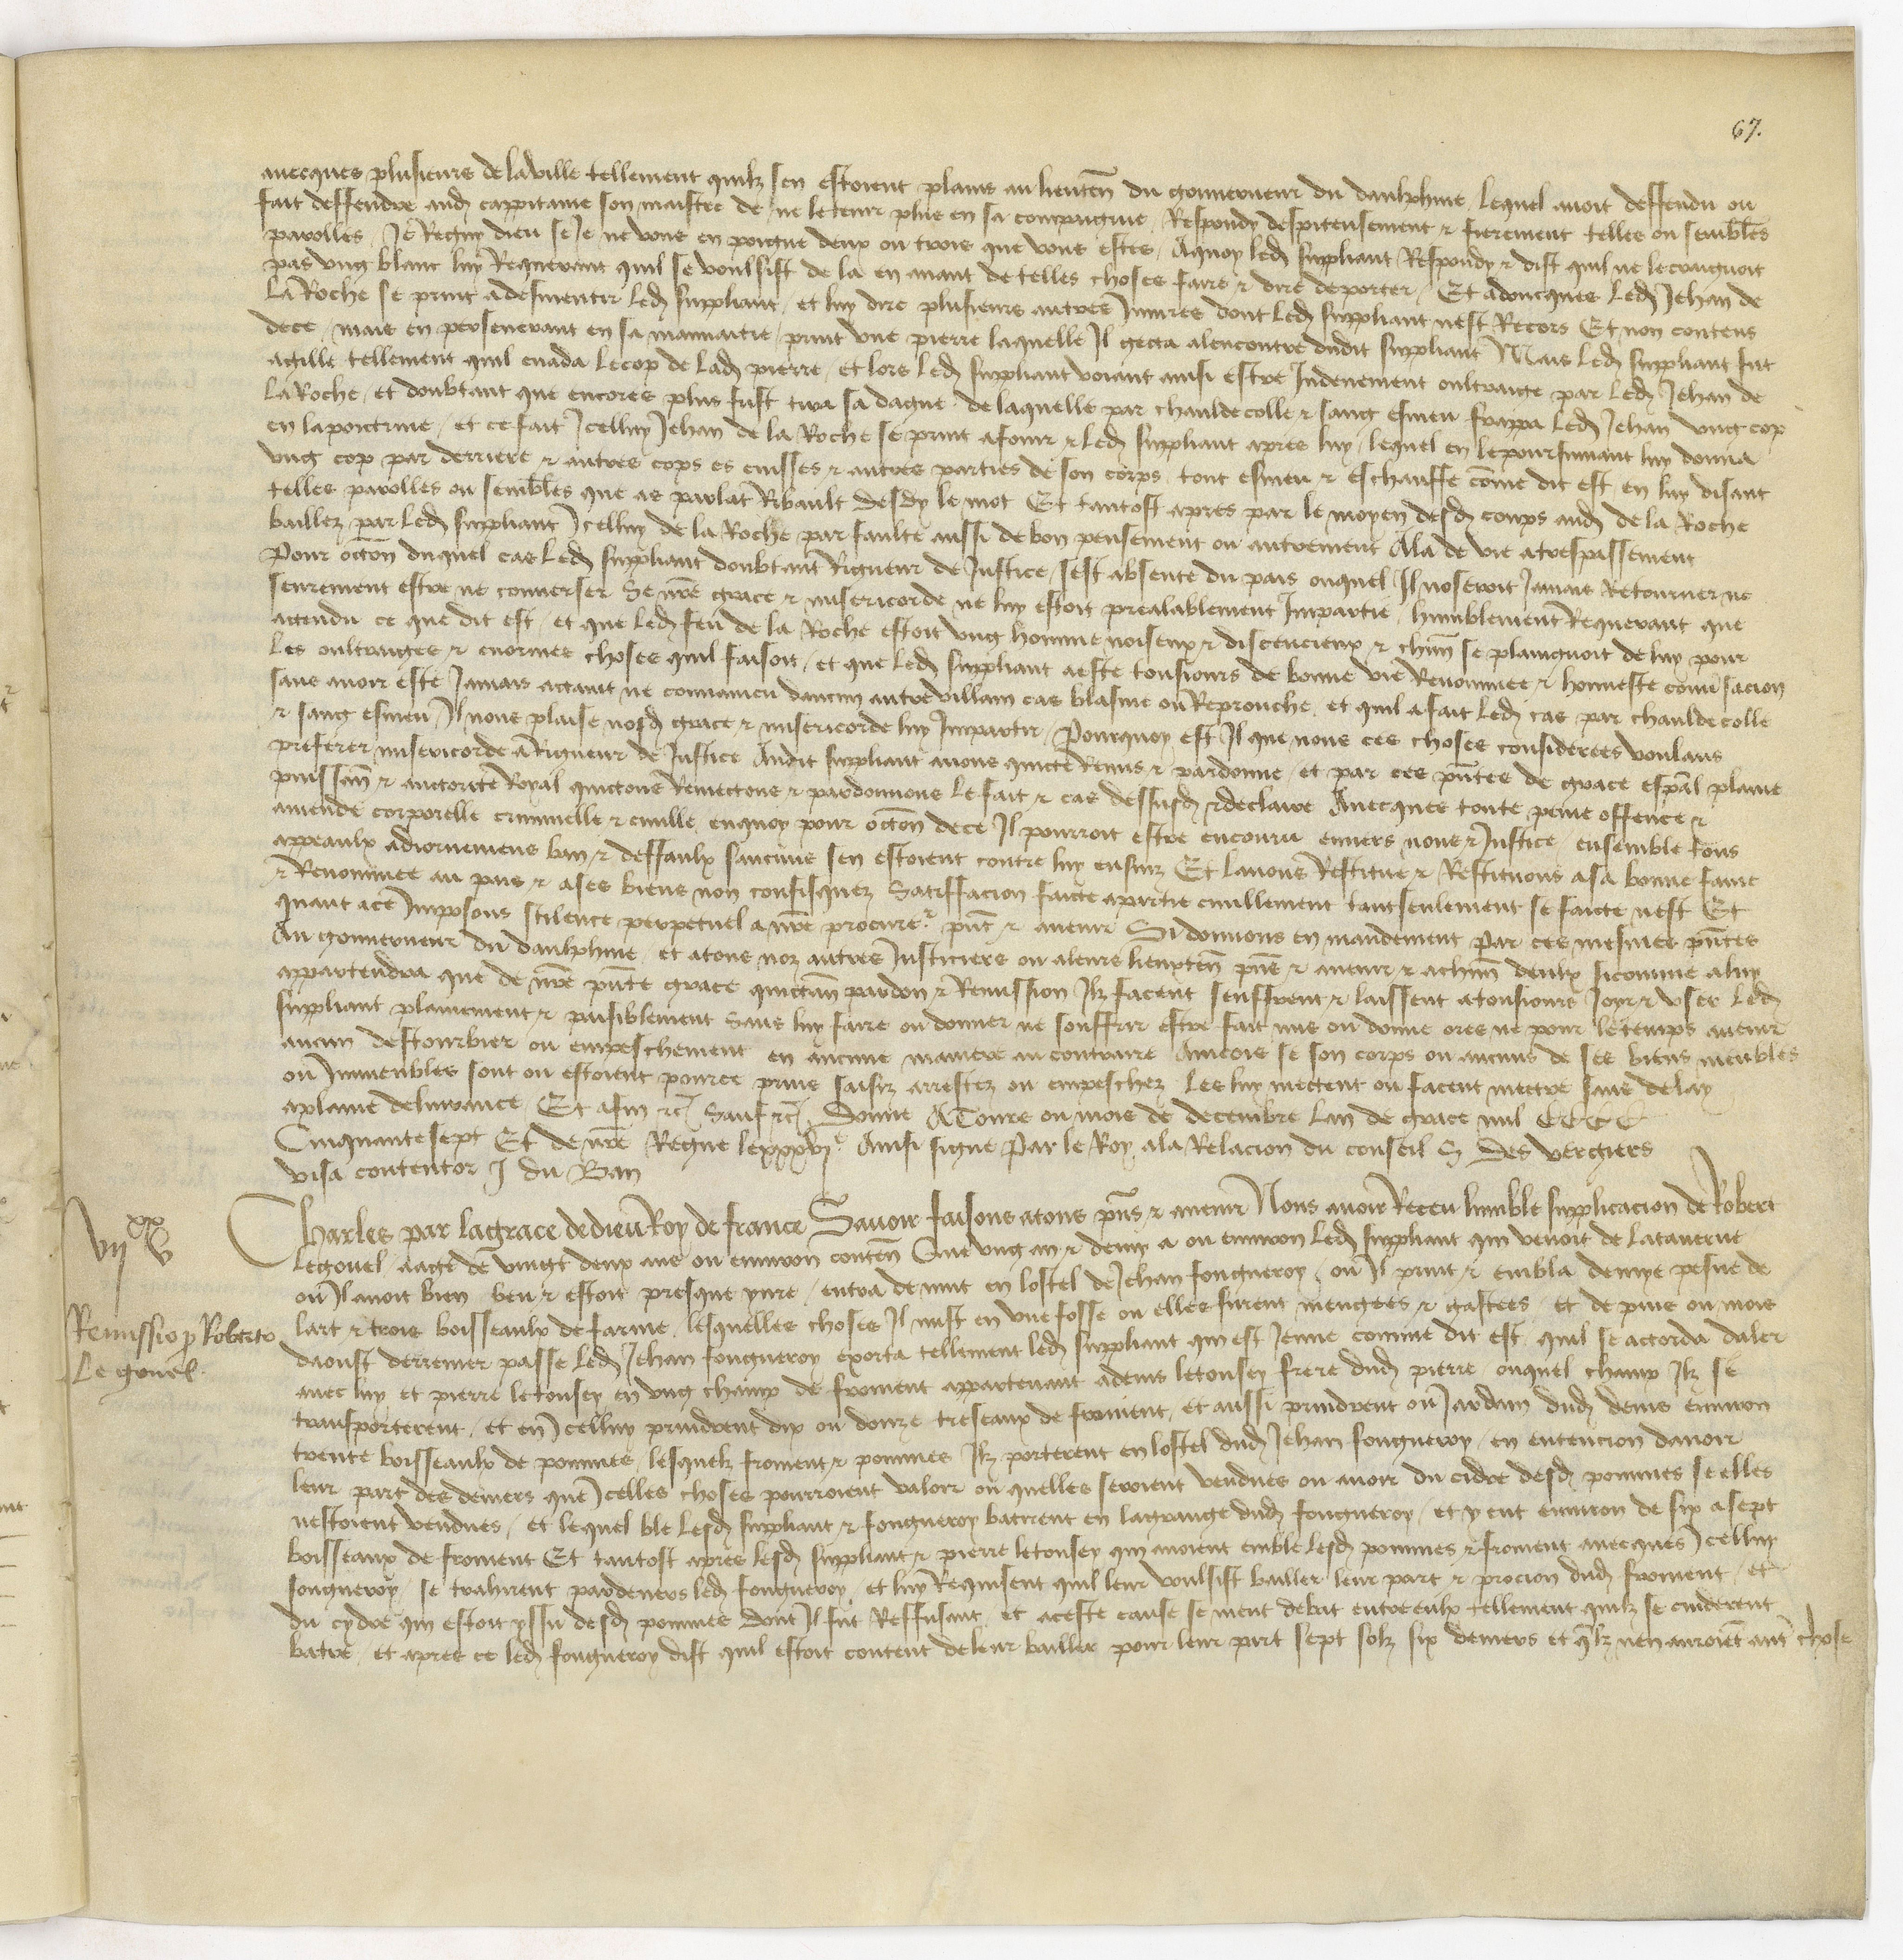 67.
avecques plusieurs de la ville tellement quilz sen estoient plains au lieuten̄ du gouverneur du daulphine lequel avoit deffendu ou
fait deffendre aud cappitaine son maistre de ne le tenir plus en sa compaignie Respondy despiteusement & fierement telles ou sembles̄
parolles Je Regny dieu se Je ne vous en poigne deux ou trois que vous estes Aquoy led suppliant Respondy & dist quil ne le craignoit
pas ung blanc luy Requerant quil se voulsist de la en avant de telles choses faire & dire deporter Et adoncques led Jehan de
La Roche se print a desmentir led suppliant et luy dire plusieurs autres Injures dont led suppliant nest Recors Et non contens
de ce mais en perseverant en sa mauvaitie print une pierre laquelle Il gecta alencontre dudit suppliant Mais led suppliant fut
agille tellement quil evada le cop de lad pierre et lors led suppliant voiant ainsi estre Indeuement oultraige par led Jehan de
La Roche et doubtant que encores plus fust tira sa dague de laquelle par chaulde colle & sang esmeu frappa led Jehan ung cop
en la poictrine et ce fait Icelluy Jehan de la Roche se print afouir & led suppliant apres luy lequel en le poursuivant luy donna
ung cop par derriere & autres cops es cuisses & autres parties de son corps tout esmeu & eschauffe com̄e dit est en luy disant
telles parolles ou sembles̄ que as parlat Ribault desdy le mot Et tantost apres par le moyen desd coups aud de la Roche
baillez par led suppliant Icelluy de la Roche par faulte aussi de bon pensement ou autrement Ala de vie a trespassement
Pour occōn duquel cas led suppliant doubtant Rigueur de Justice sest absente du pais ouquel Il noseroit Jamais Retourner ne
seurement estre ne converser Se nr̄e grace & misericorde ne luy estoit prealablement Impartie humblement Requerant que
actendu ce que dit est et que led feu de la Roche estoit ung homme noiseux & discencieux & chun̄ se plaingnoit de luy pour
les oultraiges & enormes choses quil faisoit et que led suppliant a este tousiours de bonne vie Renommee & honneste conv̄sacion
sans avoir este Jamais actaint ne convaincu daucun autre villain cas blasme ou Reprouche et quil a fait led cas par chaulde colle
& sang esmeu Il nous plaise nosd grace & misericorde luy Impartir Pourquoy est Il que nous ces choses considerees voulans
preferer misericorde a Rigueur de Justice Audit suppliant avons quicte Remis & pardonne et par ces pn̄tes de grace esp̄al plaine
puissan̄ & auctorite Royal quictons Remectons & pardonnons le fait & cas dessusd & declaire Avecques toute peine offence &
amende corporelle criminelle & civille enquoy pour occōn de ce Il pourroit estre encouru envers nous & Justice ensemble tous
appeaulx adiornemens ban & deffaulx saucuns sen estoient contre luy ensuiz Et lavons Restitue & Restituons a sa bonne fame
& Renommee au pais & a ses biens non confisquez Satisfacion faicte a partie civillement tant seulement se faicte nest Et
quant a ce Imposons silence perpetuel a nr̄e procureʳ pn̄t & avenir Si donnons en mandement par ces mesmes pn̄tes
Au gouverneur du daulphine et a tous noz autres Justiciers ou a leurs lieuxten̄ pn̄s & avenir & a chun̄ deulx si comme a luy
appartendra que de nr̄e pn̄te grace quictan̄ pardon & Remission Ilz facent seuffrent & laissent a tousiours Joyr & user led
suppliant plainement & paisiblement sans luy faire ou donner ne souffrir estre fait mis ou donne ores ne pour le temps avenir
aucun destourbier ou empeschement en aucune maniere au contraire Aincois se son corps ou aucuns de ses biens meubles
ou Immeubles sont ou estoient pource prins saisiz arrestez ou empeschez les luy mectent ou facent mectre sans delay
a plaine delivrance Et afin &c Sauf &c Donne A Tours ou mois de decembre Lan de grace mil CCCC
Cinquante sept Et de nr̄e Regne le xxxvjᵉ Ainsi signe Par le Roy a la Relacion du conseil S Des vergiers
visa contentor J du Ban
vijˣˣ v
Charles par la grace de dieu Roy de france Savoir faisons a tous pn̄s & avenir Nous avoir Receu humble supplicacion de Robert
Remissio p Roberto
Le gouel
Legouel aage de vingt deux ans ou environ conten̄ Que ung an & demy a ou environ led suppliant qui venoit de la taverne
ou Il avoit bien beu & estoit presque yvre entra de nuit en lostel de Jehan fougueroy ou Il print & embla demye pesne de
lart & trois boisseaulx de farine lesquelles choses Il mist en une fosse ou elles furent mengees & gastees et depuis ou mois
daoust derrenier passe led Jehan fougueroy exorta tellement led suppliant qui est Jeune comme dit est quil se accorda daler
avec luy et pierre letousey en ung champ de froment appartenant adenis letousey frere dud pierre ouquel champ Ilz se
transporterent et en Icelluy prindrent dix ou douze treseaux de froment et aussi prindrent ou Jardin dud denis environ
trente boisseaulx de pommes lesquelz froment & pommes Ilz porterent en lostel dud Jehan fougueroy en entencion davoir
leur part des deniers que Icelles choses pourroient valoir ou quelles seroient vendues ou avoir du cidre desd pommes se elles
nestoient vendues et lequel ble lesd suppliant & fougueroy batirent en la grange dud fougueroy et y eut environ de six a sept
boisseaux de froment Et tantost apres lesd suppliant & pierre letousey qui avoient emble lesd pommes & froment avecques Icelluy
fougueroy se trahirent pardevers led fougueroy et luy Requisent quil leur voulsist bailler leur part & porcion dud froment et
du cydre qui estoit yssu desd pommes dont Il fut Reffusant et a ceste cause se meut debat entre eulx tellement quilz se cuiderent
batre et apres ce led fougueroy dist quil estoit content de leur bailler pour leur part sept solz six deniers et qlz nen auroiēt aut̄ chose